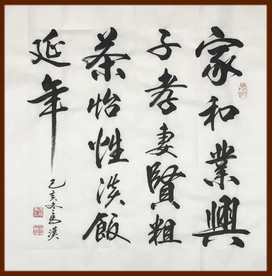 家和業興
子孝妻賢粗
茶怡性淡飯
延年
己亥冬馬漢